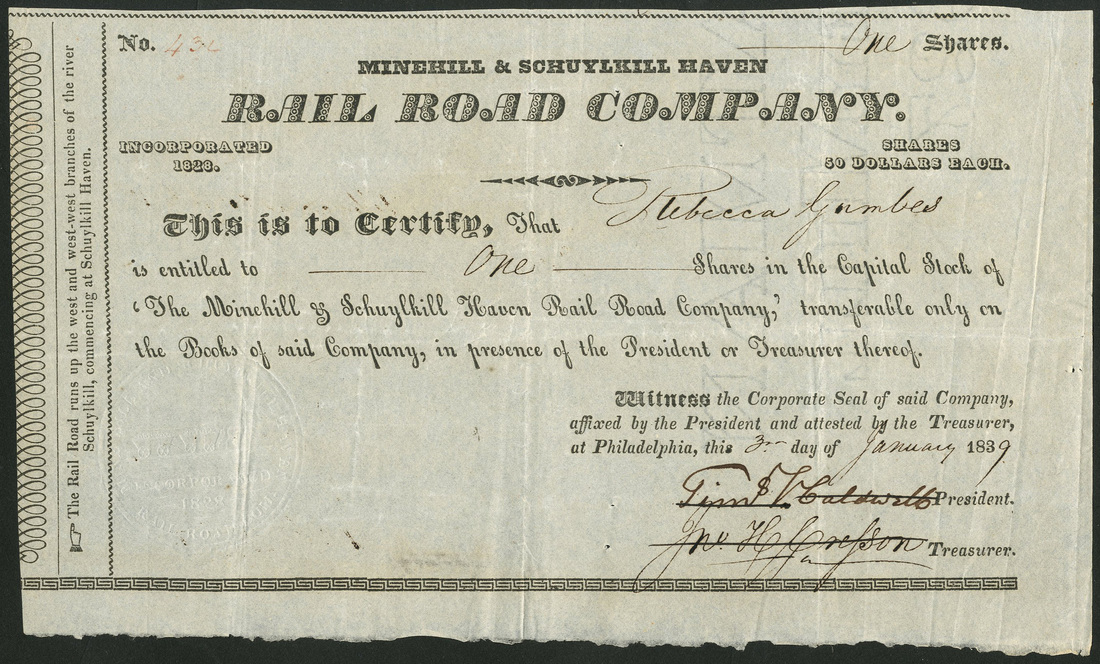 No. 43
One Shares.
MINEHILL & SCHUYLKILL HAVEN
RAIL ROAD COMPANY.
INCORPORATED
1828.
SHARES
50 DOLLARS EACH.
This is to Certify, That Rebecca Gumbes
is entitled to One Shares in the Capital Stock of
'The Minehill & Schuylkill Haven Rail Road Company,' transferable only on
the Books of said Company, in presence of the President or Treasurer thereof.
Witness the Corporate Seal of said Company,
affixed by the President and attested by the Treasurer,
at Philadelphia, this 3rd day of January 1839
Caldwell President.
Jno. H Cresson Treasurer.
☞ The Rail Road runs up the west and west-west branches of the river
Schuylkill, commencing at Schuylkill Haven.
INCORPORATED
1828